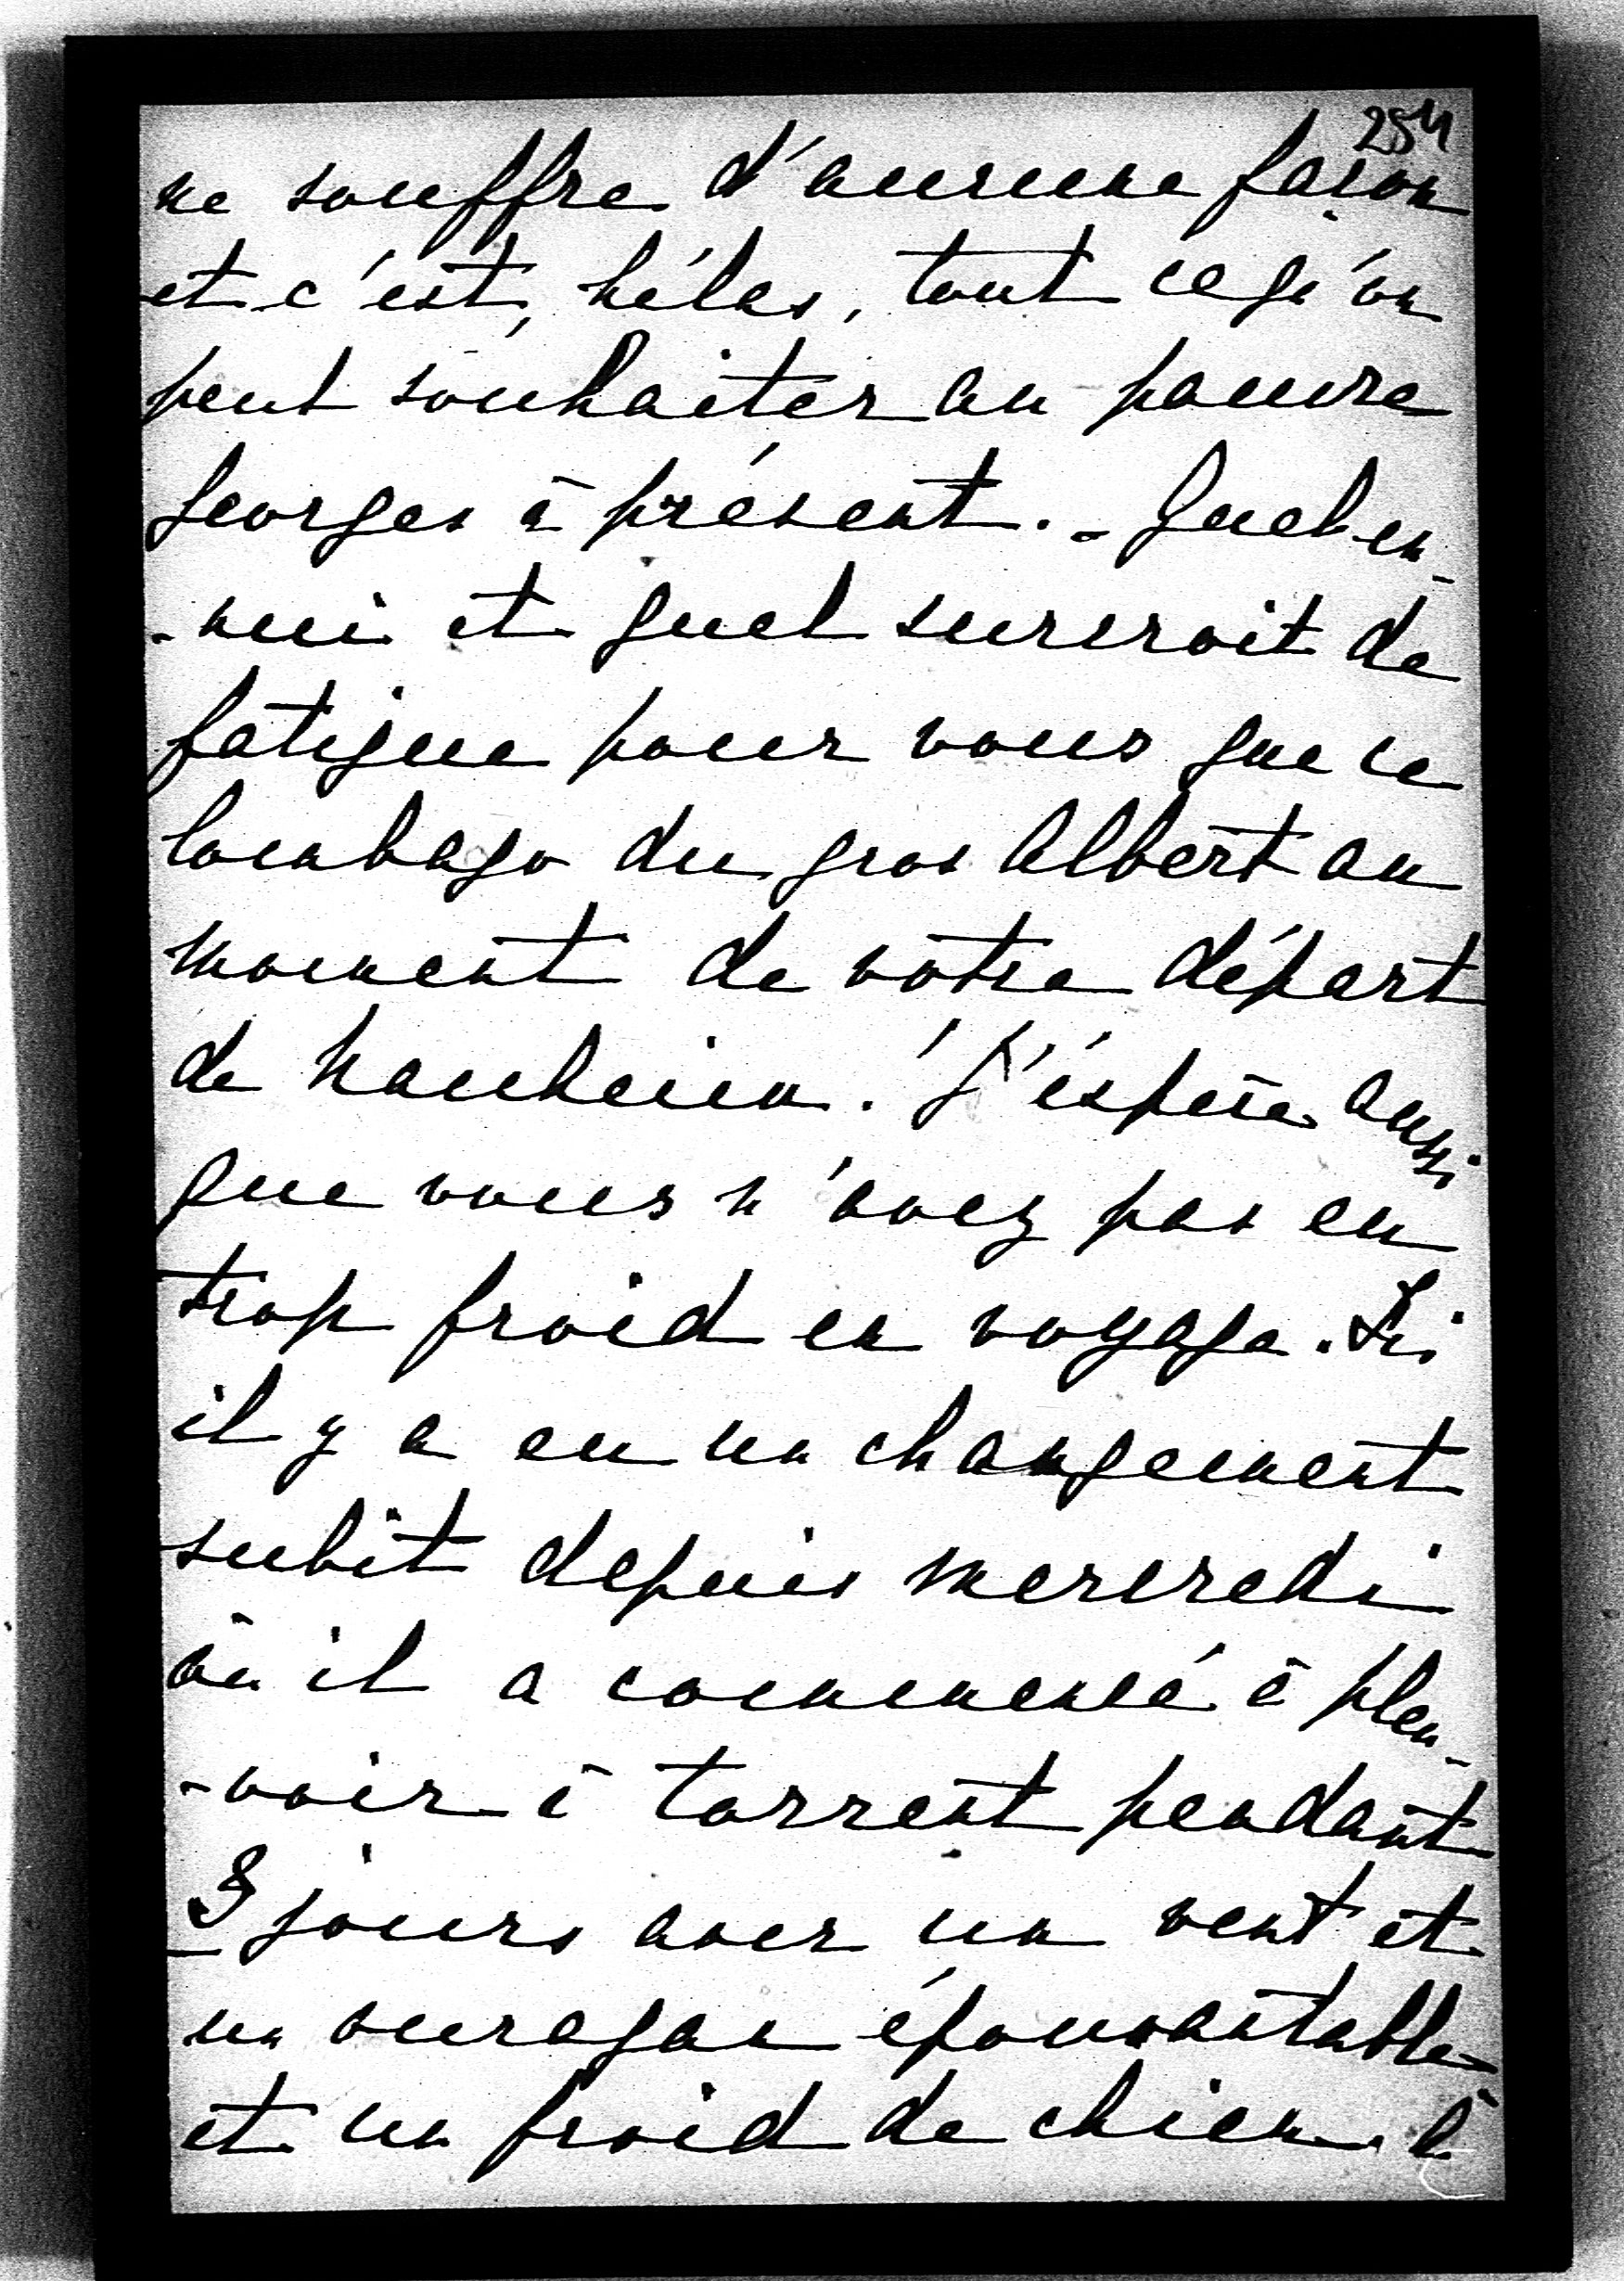 254
ne souffre d'aucune façon
et c'est, hélas, tout ce qu'on
peut souhaiter au pauvre
Georges à présent. - Quel en-
-nui et quel surcroit de
fatigue pour vous que ce
loumbago du gros Albert au
moment de votre départ
de Nauheim. J'éspère aussi
que vous n'avez pas eu
trop froid en voyage. Ici
il y a eu un changement
subit depuis mercredi
où il a commencé à pleu-
-voir à torrent pendant
3 jours avec un vent et
un ouragan épouvantable
et un froid de chien. à